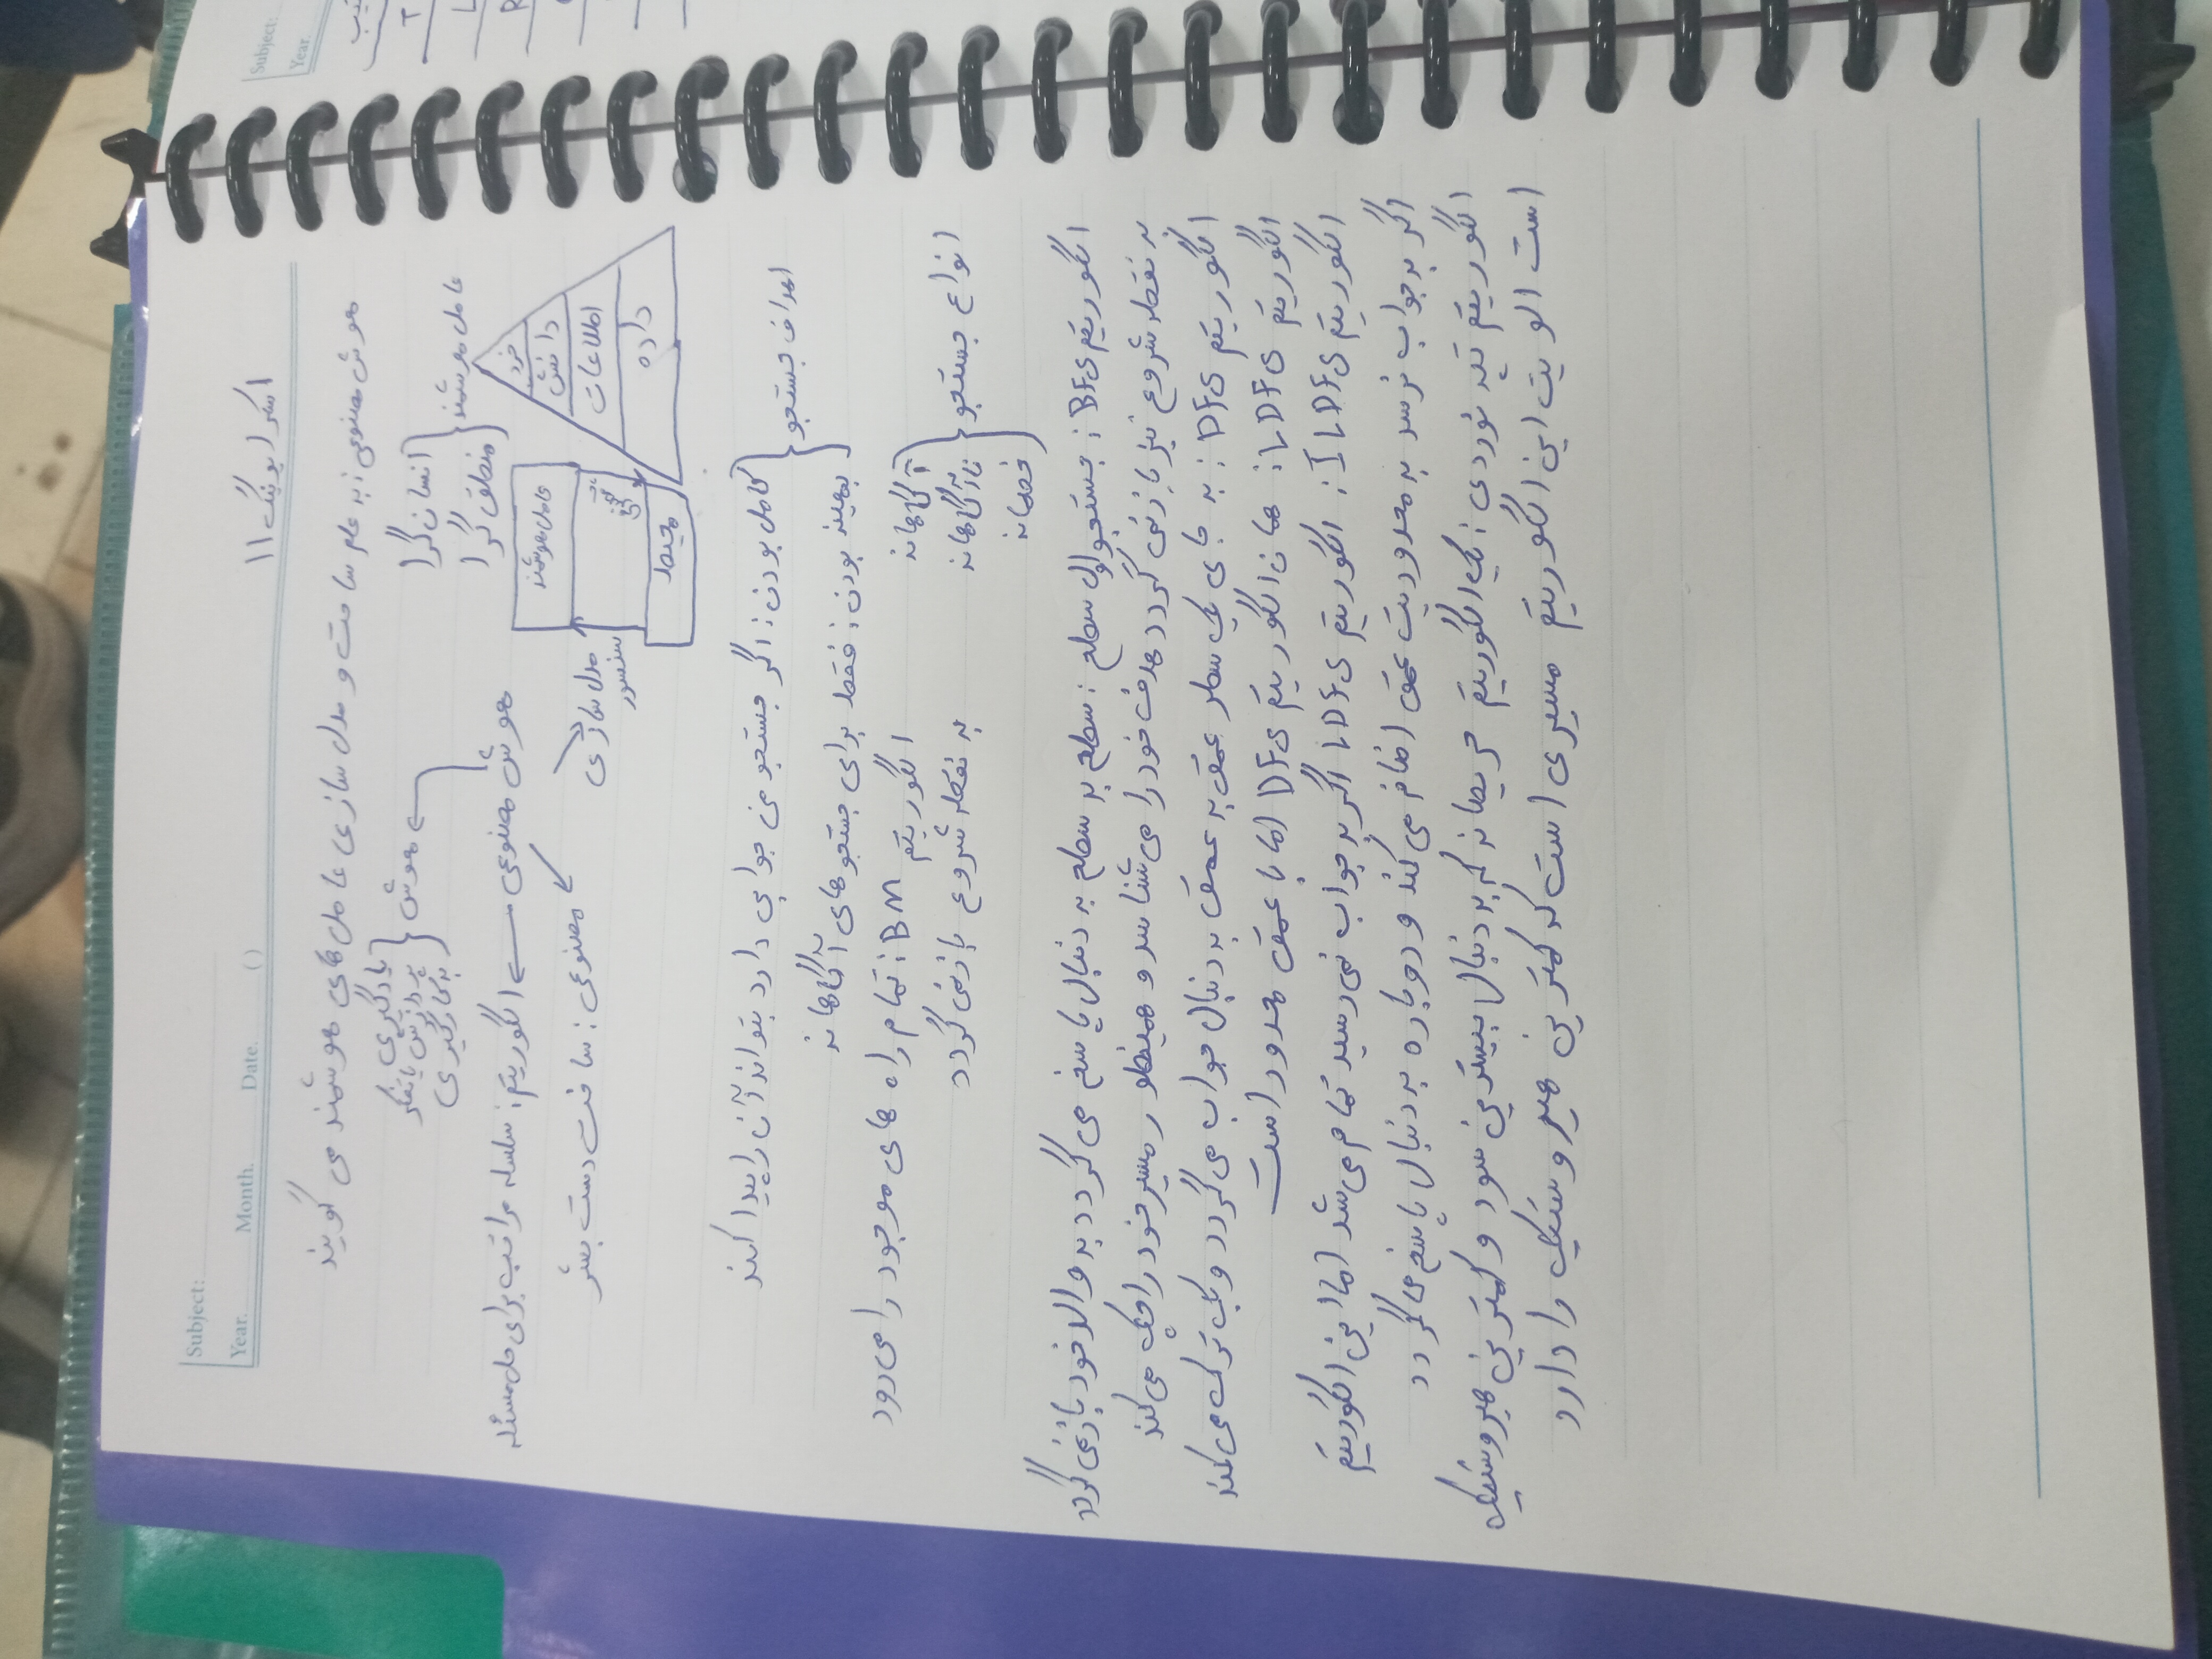 Subject:
Year. Month. Date. ( )
اسکرایونیگ ۱۱
هوش مصنوعی: به علم ساخت و مدل سازی عامل های هوشمند می گویند
عامل هوشمند
انسان گرا
منطق گرا
هوش
یادگیری
پردازش یا تفکر
به کارگیری
هوش مصنوعی
الگوریتم: سلسله مراتب برای حل مسئله
مصنوعی: ساخت دست بشر
مدل سازی
عامل هوشمند
سنسور
محیط
خرد
دانش
اطلاعات
داده
اهداف جستجو
کامل بودن: اگر جستجو من جوابی دارد بتواند آن را پیدا کند
بهینه بودن: فقط برای جستجو های آگاهانه
انواع جستجو
آگاهانه
ناآگاهانه
خصمانه
الگوریتم BM: تمام راه های موجود را می رود
به نقطه شروع بازنمی گردد
الگوریتم BFS: جستجو اول سطح: سطح به سطح به دنبال پاسخ می گردد به والد خود بازنمی گردد
به نقطه شروع نیز بازنمی گردد هدف خود را می شناسد و همینطور مسیر خود را چک می کند
الگوریتم DFS: به جای یک سطر عمق به عمق به دنبال جواب می گردد و بک ترک می کند
الگوریتم LDFS: همان الگوریتم DFS اما با عمق محدود است
الگوریتم ILDFS: الگوریتم LDFS اگر به جواب نمی رسید تمام می شد اما این الگوریتم
اگر به جواب نرسد به محدودیت عمق اضافه می کند و دوباره به دنبال پاسخ می گردد
الگوریتم تپه نوردی: یک الگوریتم حریصانه که به دنبال بیشترین سود و کمترین هیروستیک
است الویت این الگوریتم مسیری است که کمترین هیروستیک را دارد
Subject:
Year.